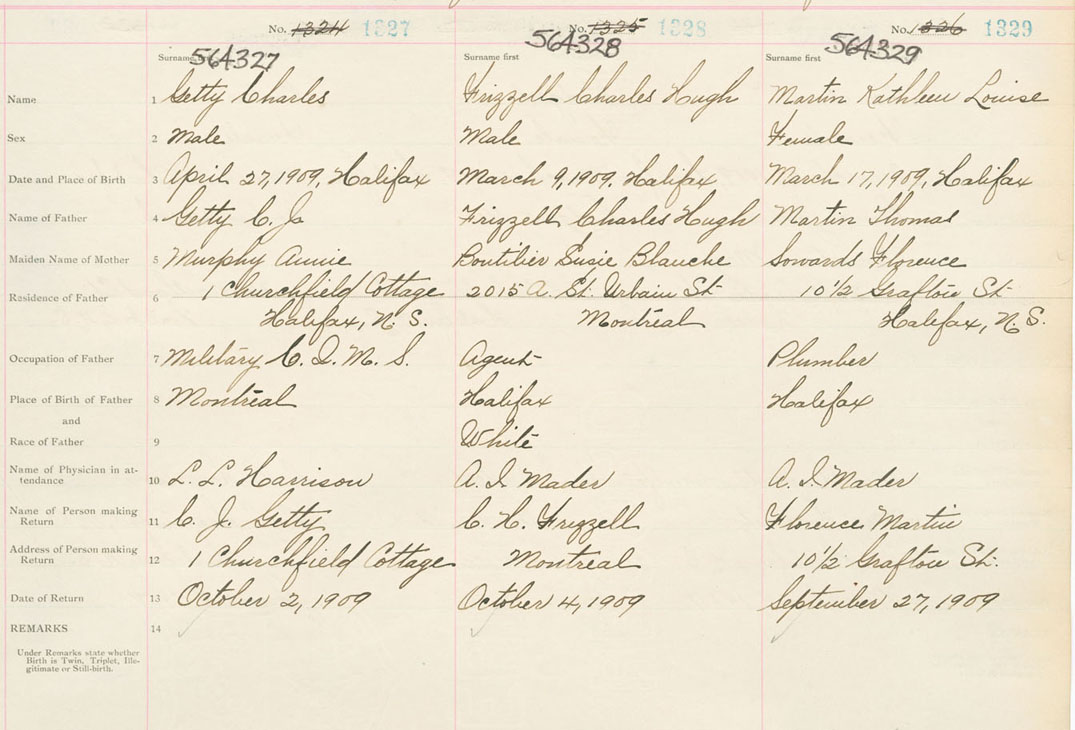 No. 1324 1327 No. 1325 1328 No. 1326 1329
564327 564328 564329
Surname first Surname first Surname first
Name 1 Getty Charles Frizzell Charles Hugh Martin Kathleen Louise
Sex 2 Male Male Female
Date and Place of Birth 3 April 27, 1909, Halifax March 9, 1909, Halifax March 17, 1909, Halifax
Name of Father 4 Getty C. J. Frizzell Charles Hugh Martin Thomas
Maiden Name of Mother 5 Murphy Annie Boutilier Susie Blanche Sowards Florence
Residence of Father 6 1 Churchfield Cottage 2015 A. St. Urbain St 10 1/2 Grafton St
Halifax, N. S. Montreal Halifax, N. S.
Occupation of Father 7 Military C. I. M. S. Agent Plumber
Place of Birth of Father 8 Montreal Halifax Halifax
and
Race of Father 9 White
Name of Physician in at-
tendance 10 L. L. Harrison A. I. Mader A. I. Mader
Name of Person making
Return 11 C. J. Getty C. H. Frizzell Florence Martin
Address of Person making
Return 12 1 Churchfield Cottage Montreal 10 1/2 Grafton St.
Date of Return 13 October 2, 1909 October 4, 1909 September 27, 1909
REMARKS 14
Under Remarks state whether
Birth is Twin, Triplet, Ille-
gitimate or Still-birth.